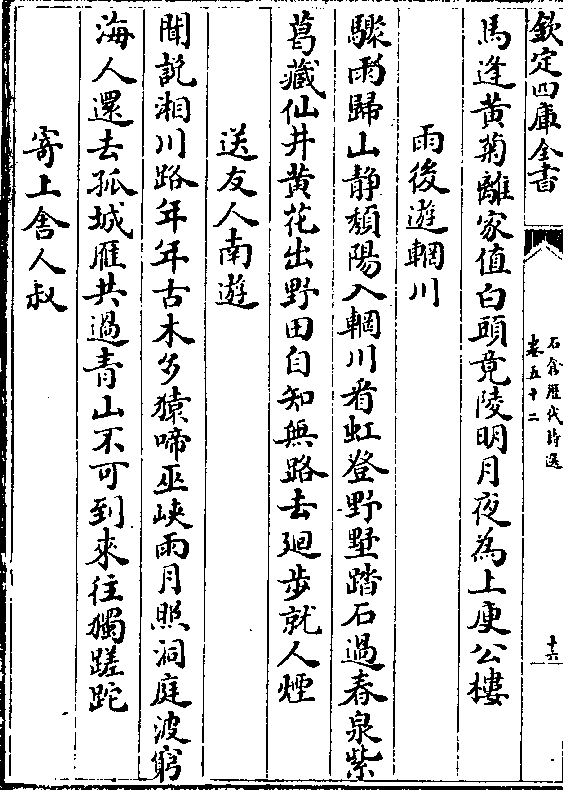 欽定四庫全書
石倉歷代詩選
卷五十二
十六
馬逢黃菊離家值白頭竟陵明月夜為上庾公樓
雨後遊輞川
驟雨歸山静頽陽入輞川看虹登野墅踏石過春泉紫
葛藏仙井黃花出野田自知無路去廻步就人煙
送友人南遊
聞説湘川路年年古木多猿啼巫峽雨月照洞庭波窮
海人還去孤城雁共過青山不可到來往獨蹉跎
寄上舍人叔